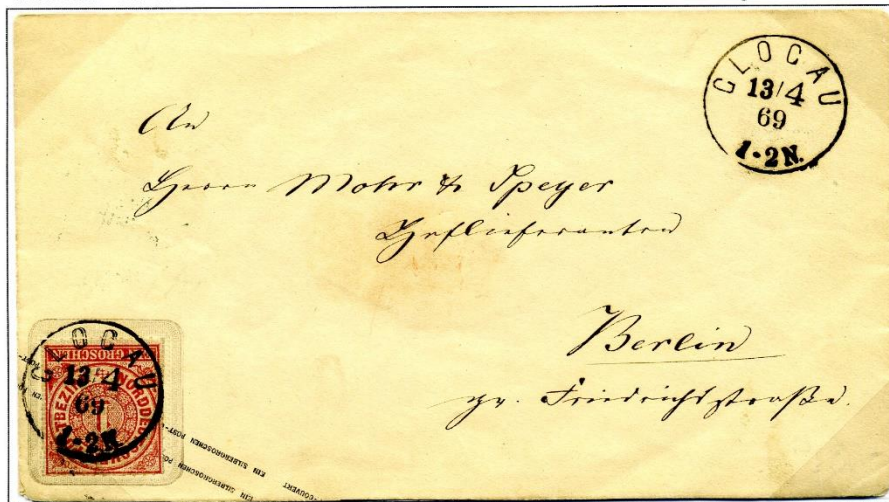 GLOGAU
13/4
69
1-2N.
An
Herrn Mohr & Speyer
Hoflieferanten
Berlin
gr. Friedrichstraße.
GLOGAU
13/4
69
1-2N.
GROSCHEN
1
NORDDEUTSCHER POSTBEZIRK
EIN SILBERGROSCHEN POST-COUVERT
EIN SILBERGROSCHEN POST